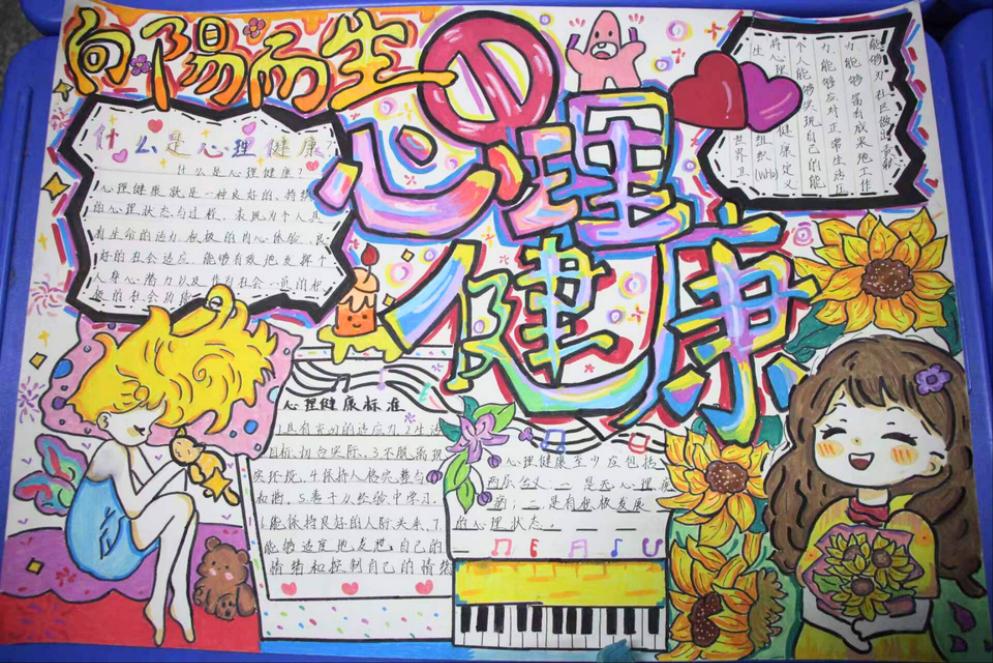 向阳而生
心理
健康
什么是心理健康?
什么是心理健康?
心理健康就是一种良好的、持续
的心理状态与过程、表现为个人具
有生命的活力 积极的内心体验、良
好的社会适应 能够有效地发挥个
人身心潜力以及作为社会一员的积
极的社会功能
能够为社区做出贡献
力,能够富有成果地工作
力,能够应对正常生活压
个人能够实现自己的能
将心理健康定义
世界卫
生组织(Who)
心理健康标准
1.具有充分的适应力,2.生活
目标,切合实际、3.不脱离现
实环境、4.保持人格完整与
和谐、5.善于从经验中学习、
6.能保持良好的人际关系、7.
能够适度地发泄自己的
情绪和控制自己的情绪
心理健康至少应包括
两层含义:一是无心理疾
病;二是有积极发展
的心理状态。